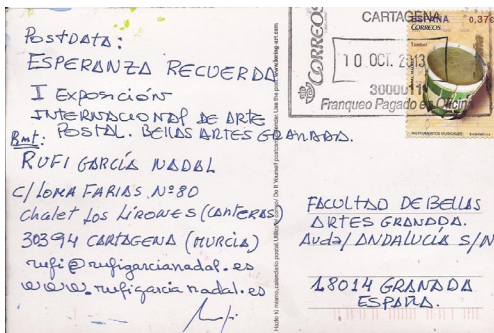 POSTDATA:
ESPERANZA RECUERDA
I EXPOSICIÓN
INTERNACIONAL DE ARTE
POSTAL. BELLAS ARTES GRANADA.
Rmt:
RUFI GARCÍA NADAL
C/LOMA FARIAS Nº80
Chalet LOS LIRONES (CANTERAS)
30394 CARTAGENA (MURCIA)
rufi@rufigarcianadal.es
www.rufigarcianadal.es
Rufi
CORREOS
CARTAGENA
10. OCT. 2013
Franqueo Pagado en Oficina
ESPAÑA 0,37€
CORREOS
Tambor
INSTRUMENTOS MUSICALES
FACULTAD DE BELLAS
ARTES GRANADA.
Avda/ ANDALUCÍA S/N
18014 GRANADA
ESPAÑA.